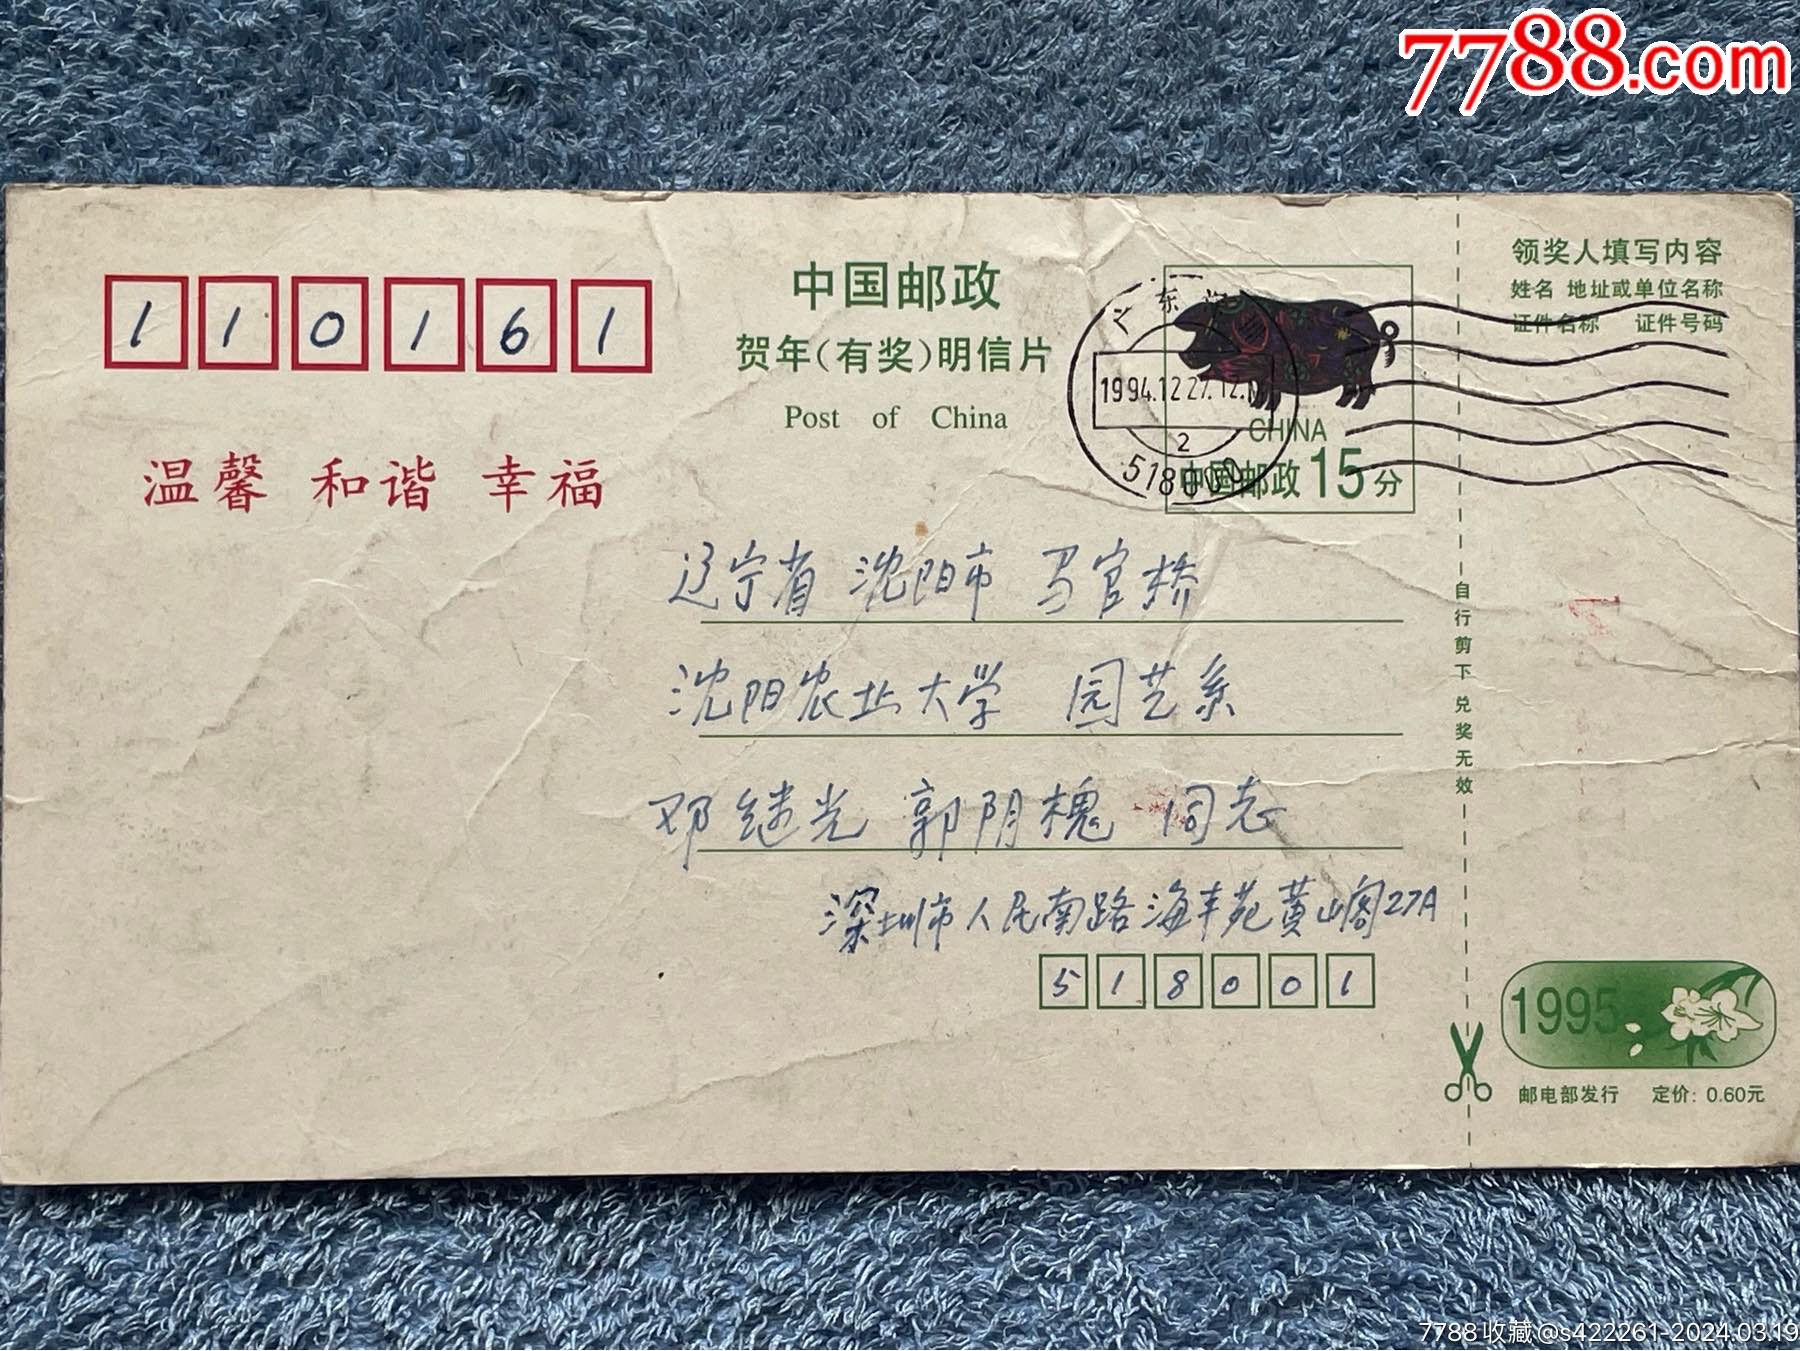 7788.com
110161
中国邮政
贺年(有奖)明信片
Post of China
温馨 和谐 幸福
1994.12.27.12
2
518
CHINA
中国邮政 15分
领奖人填写内容
姓名 地址或单位名称
证件名称 证件号码
辽宁省 沈阳市 马官桥
沈阳农业大学 园艺系
邓继光 郭阴槐 同志
深圳市人民南路海丰苑黄山阁27A
518001
自行剪下兑奖无效
1995
邮电部发行 定价: 0.60元
7788收藏@s422261-2024.03.19